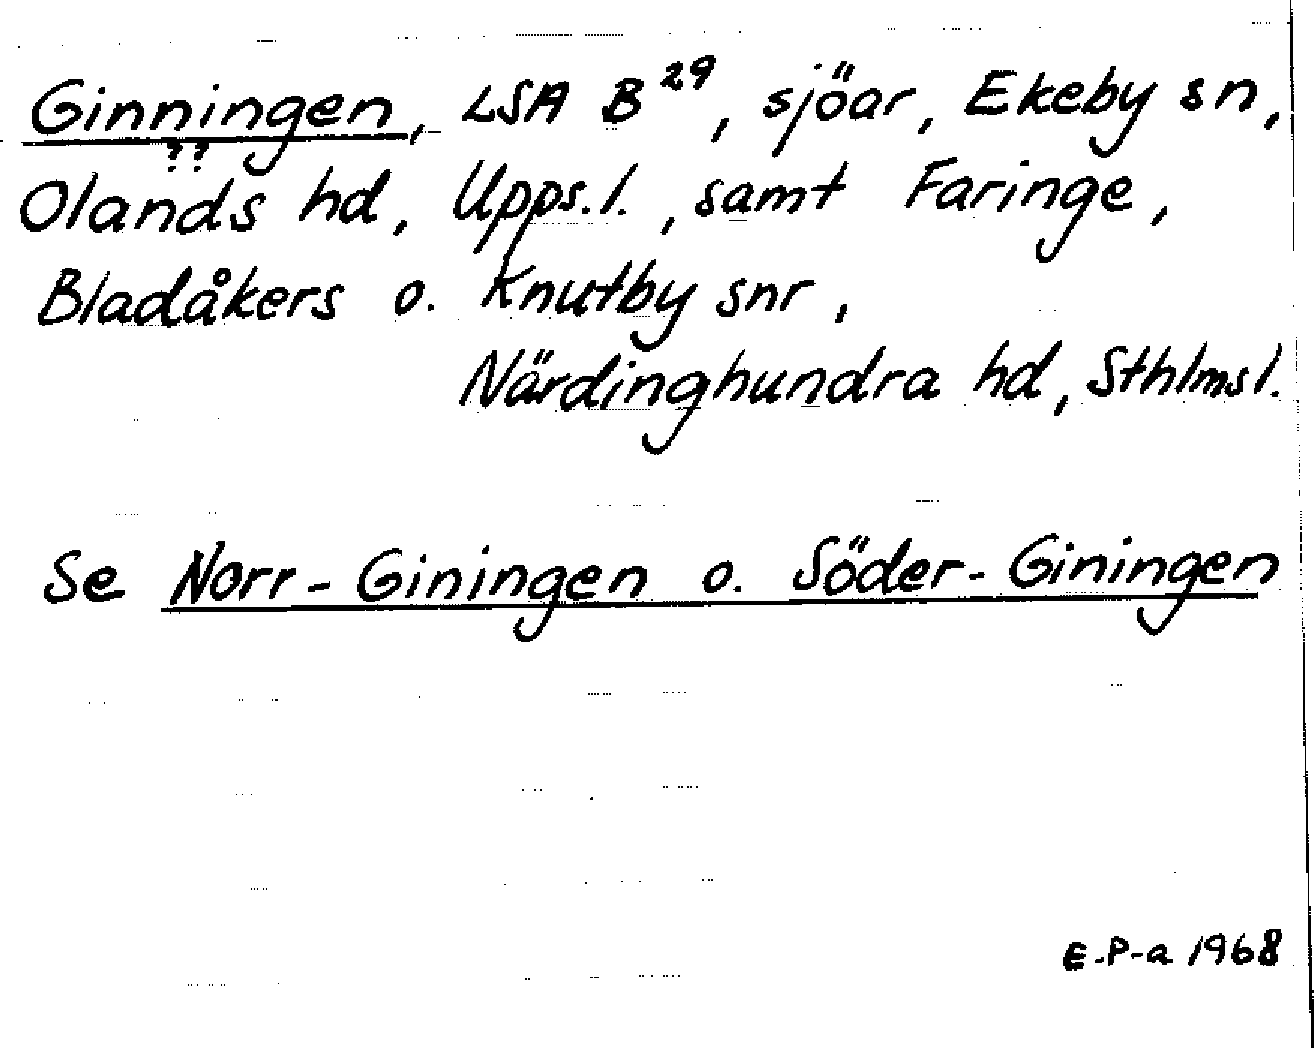 Ginningen, LSA B29, sjöar, Ekeby sn,
??
Olands hd, Upps.l., samt Faringe,
Bladåkers o. Knutby snr,
Närdinghundra hd, Sthlmsl.
Se Norr-Giningen o. Söder-Giningen
E.P-a 1968